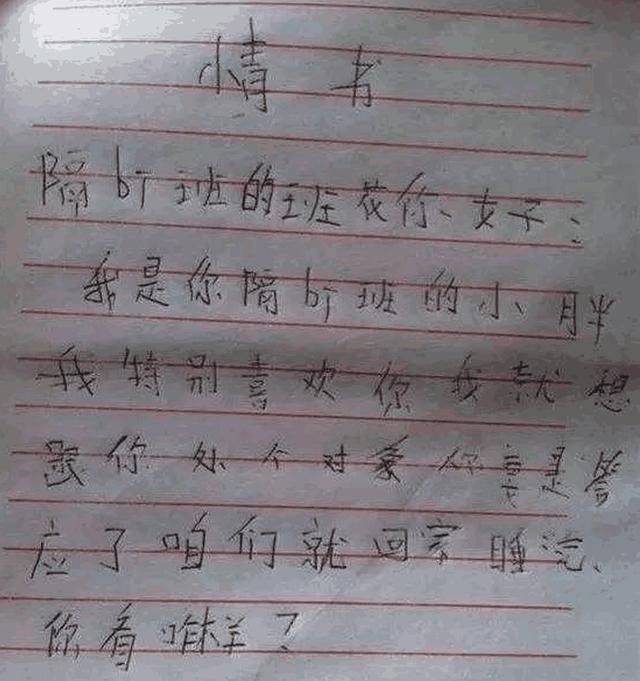 情书
隔bi班的班花你、女子:
我是你隔bi班的小、胖
我特别喜欢你我就想
跟你处个对象你要是答
应了咱们就回家睡觉、
你看咋样?